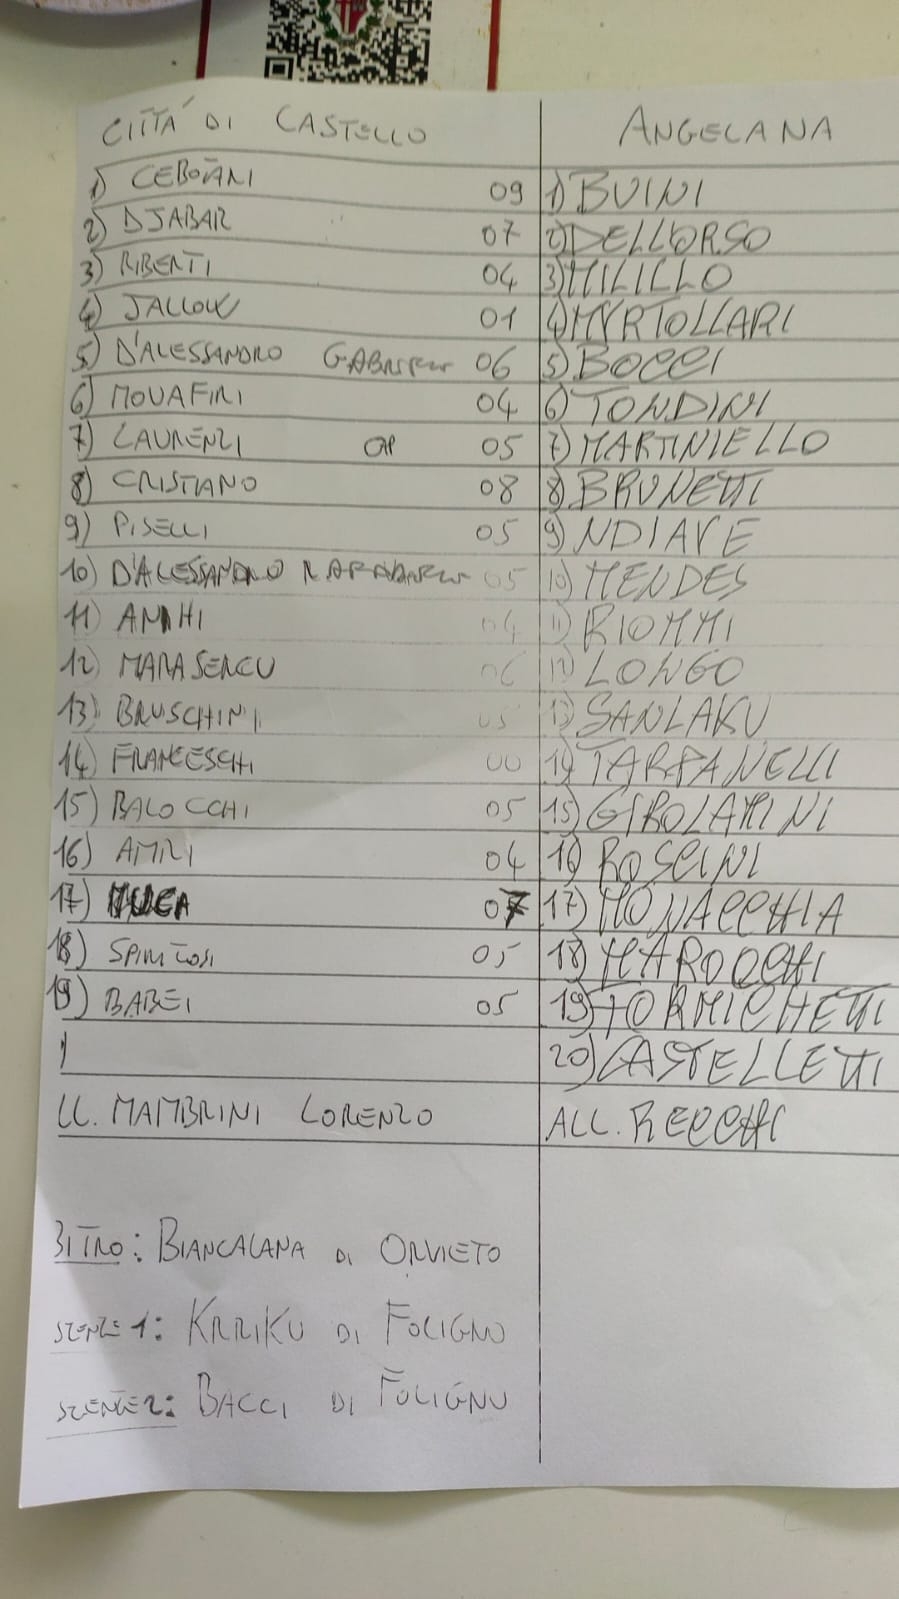 CITTÁ DI CASTELLO ANGELANA
1) CEBOTARI 09 1) BUINI
2) DJABAR 07 2) DELL'ORSO
3) RIBERTI 04 3) MILILLO
4) JALLOW 01 4) MYRTOLLARI
5) D'ALESSANDRO 06 5) BOCCI
6) MOUAFIRI 04 6) TONDINI
7) LAURENZI 05 7) MARTINIELLO
8) CRISTIANO 08 8) BRUNETTI
9) PISELLI 05 9) NDIAYE
10) D'ALESSANDRO 05 10) MENDES
11) 04 11) RIOMMI
12) MARASENCU 06 12) LONGO
13) BRUSCHINI 05 13) SANLAKU
14) FRANCESCHI 00 14) TARPANELLI
15) BALOCCHI 05 15) GIROLAMINI
16) AMRI 04 16) ROSCINI
17) 07 17) MONACCHIA
18) SPIRITOSI 05 18) MAROCCHI
19) BABEI 05 19) FORMICHETTI
20) CASTELLETTI
LL. MAMBRINI LORENZO ALL. RECCHI
BITRO: BIANCALANA DI ORVIETO
1: KRRIKU DI FOLIGNO
2: BACCI DI FOLIGNO